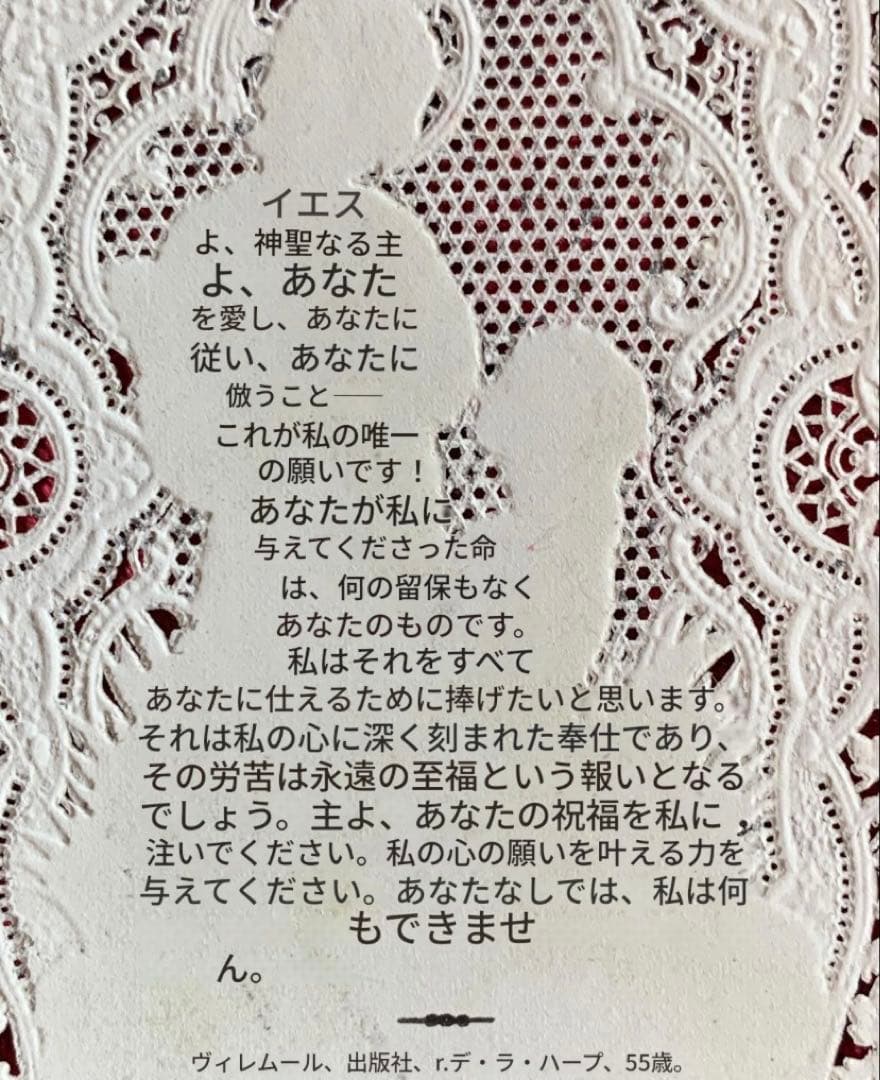 イエス
よ、神聖なる主
よ、あなた
を愛し、あなたに
従い、あなたに
倣うこと──
これが私の唯一
の願いです！
あなたが私に
与えてくださった命
は、何の留保もなく
あなたのものです。
私はそれをすべて
あなたに仕えるために捧げたいと思います。
それは私の心に深く刻まれた奉仕であり、
その労苦は永遠の至福という報いとなる
でしょう。主よ、あなたの祝福を私に
注いでください。私の心の願いを叶える力を
与えてください。あなたなしでは、私は何
もできませ
ん。
ヴィレムール、出版社、r.デ・ラ・ハープ、55歳。